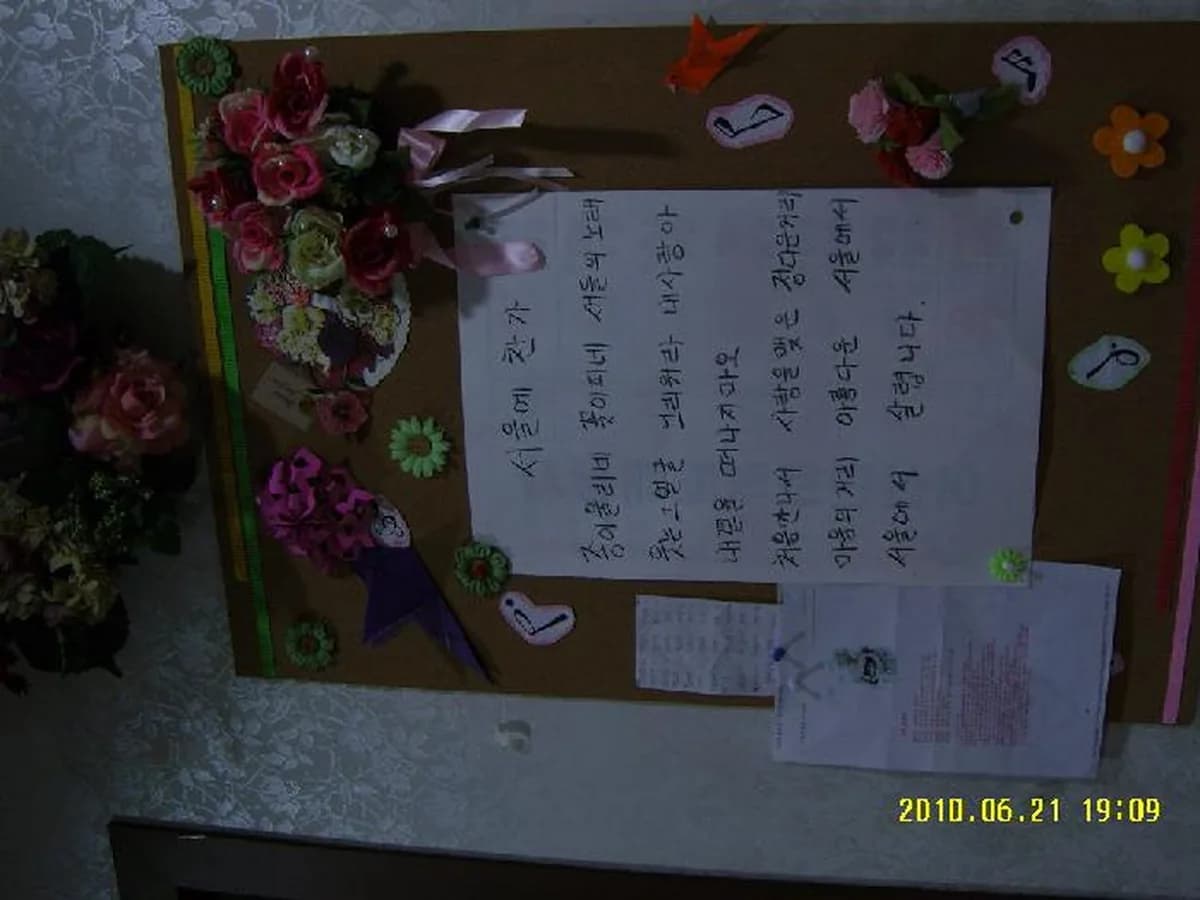 서울에 찬가
종이울리네 꽃이피네 서울의 노래
웃는 그얼굴 그리워라 내사랑아
내곁을 떠나지마오
처음만나서 사랑을맺은 정다운거리
마음의 거리 아름다운 서울에서
서울에서 살렵니다.
2010.06.21 19:09